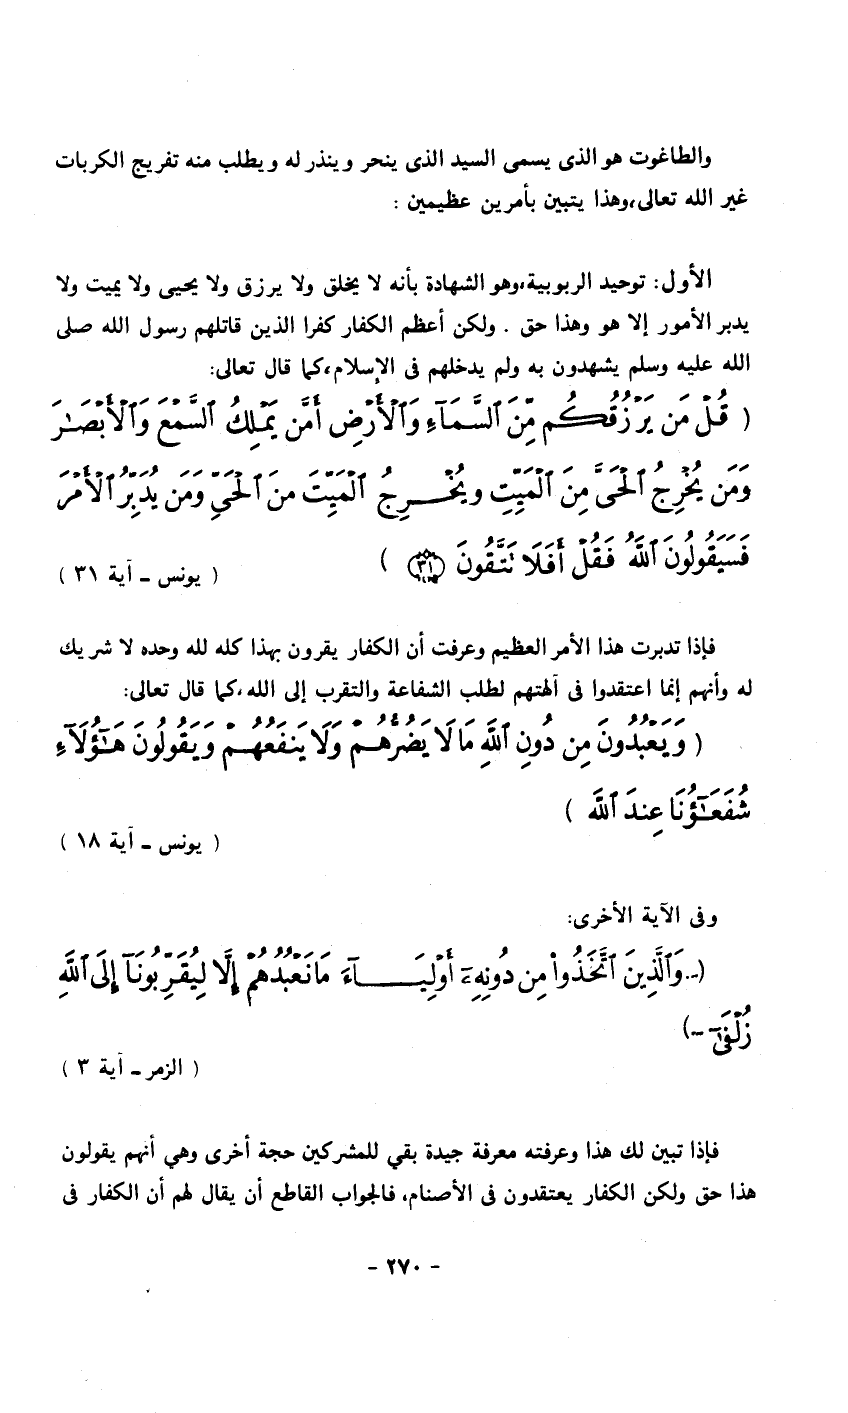 والطاغوت هو الذى يسمى السيد الذى ينحر وينذر له ويطلب منه تفريج الكربات
غير الله تعالى،وهذا يتبين بأمرين عظيمين :
الأول: توحيد الربوبية،وهو الشهادة بأنه لا يخلق ولا يرزق ولا يحيى ولا يميت ولا
يدبر الأمور إلا هو وهذا حق . ولكن أعظم الكفار كفرا الذين قاتلهم رسول الله صلى
الله عليه وسلم يشهدون به ولم يدخلهم فى الإسلام،كما قال تعالى:
( قُلْ مَن يَرْزُقُكُم مِّنَ ٱلسَّمَآءِ وَٱلْأَرْضِ أَمَّن يَمْلِكُ ٱلسَّمْعَ وَٱلْأَبْصَـٰرَ
وَمَن يُخْرِجُ ٱلْحَىَّ مِنَ ٱلْمَيِّتِ وَيُخْرِجُ ٱلْمَيِّتَ مِنَ ٱلْحَىِّ وَمَن يُدَبِّرُ ٱلْأَمْرَ
فَسَيَقُولُونَ ٱللَّهُ فَقُلْ أَفَلَا تَتَّقُونَ (٣١) )
( يونس ـ آية ٣١ )
فإذا تدبرت هذا الأمر العظيم وعرفت أن الكفار يقرون بهذا كله لله وحده لا شريك
له وأنهم إنما اعتقدوا فى آلهتهم لطلب الشفاعة والتقرب إلى الله،كما قال تعالى:
( وَيَعْبُدُونَ مِن دُونِ ٱللَّهِ مَا لَا يَضُرُّهُمْ وَلَا يَنفَعُهُمْ وَيَقُولُونَ هَـٰٓؤُلَآءِ
شُفَعَـٰٓؤُنَا عِندَ ٱللَّهِ )
( يونس ـ آية ١٨ )
وفى الآية الأخرى:
(-..وَٱلَّذِينَ ٱتَّخَذُوا۟ مِن دُونِهِۦٓ أَوْلِيَـــآءَ مَا نَعْبُدُهُمْ إِلَّا لِيُقَرِّبُونَآ إِلَى ٱللَّهِ
زُلْفَىٰٓ --)
( الزمر ـ آية ٣ )
فإذا تبين لك هذا وعرفته معرفة جيدة بقي للمشركين حجة أخرى وهي أنهم يقولون
هذا حق ولكن الكفار يعتقدون فى الأصنام، فالجواب القاطع أن يقال لهم أن الكفار فى
- ٢٧٠ -